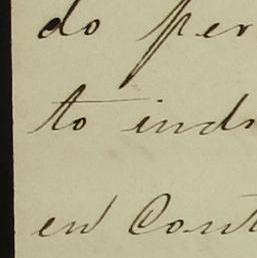 do per
to inds
en Cont